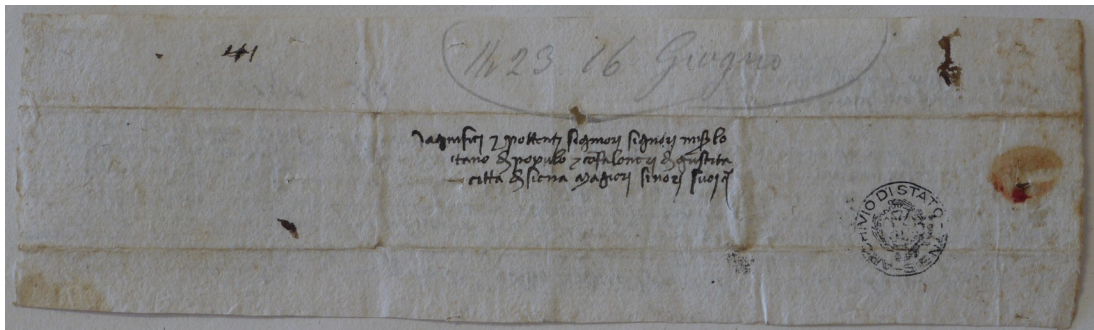 1423 16 Giugno
Magnifici & pottenti signori signori
tano di populo & cofaloneri di giustitia
citta di siena Magiori sinori suoi
ARCHIVIO DI STATO - SIENA